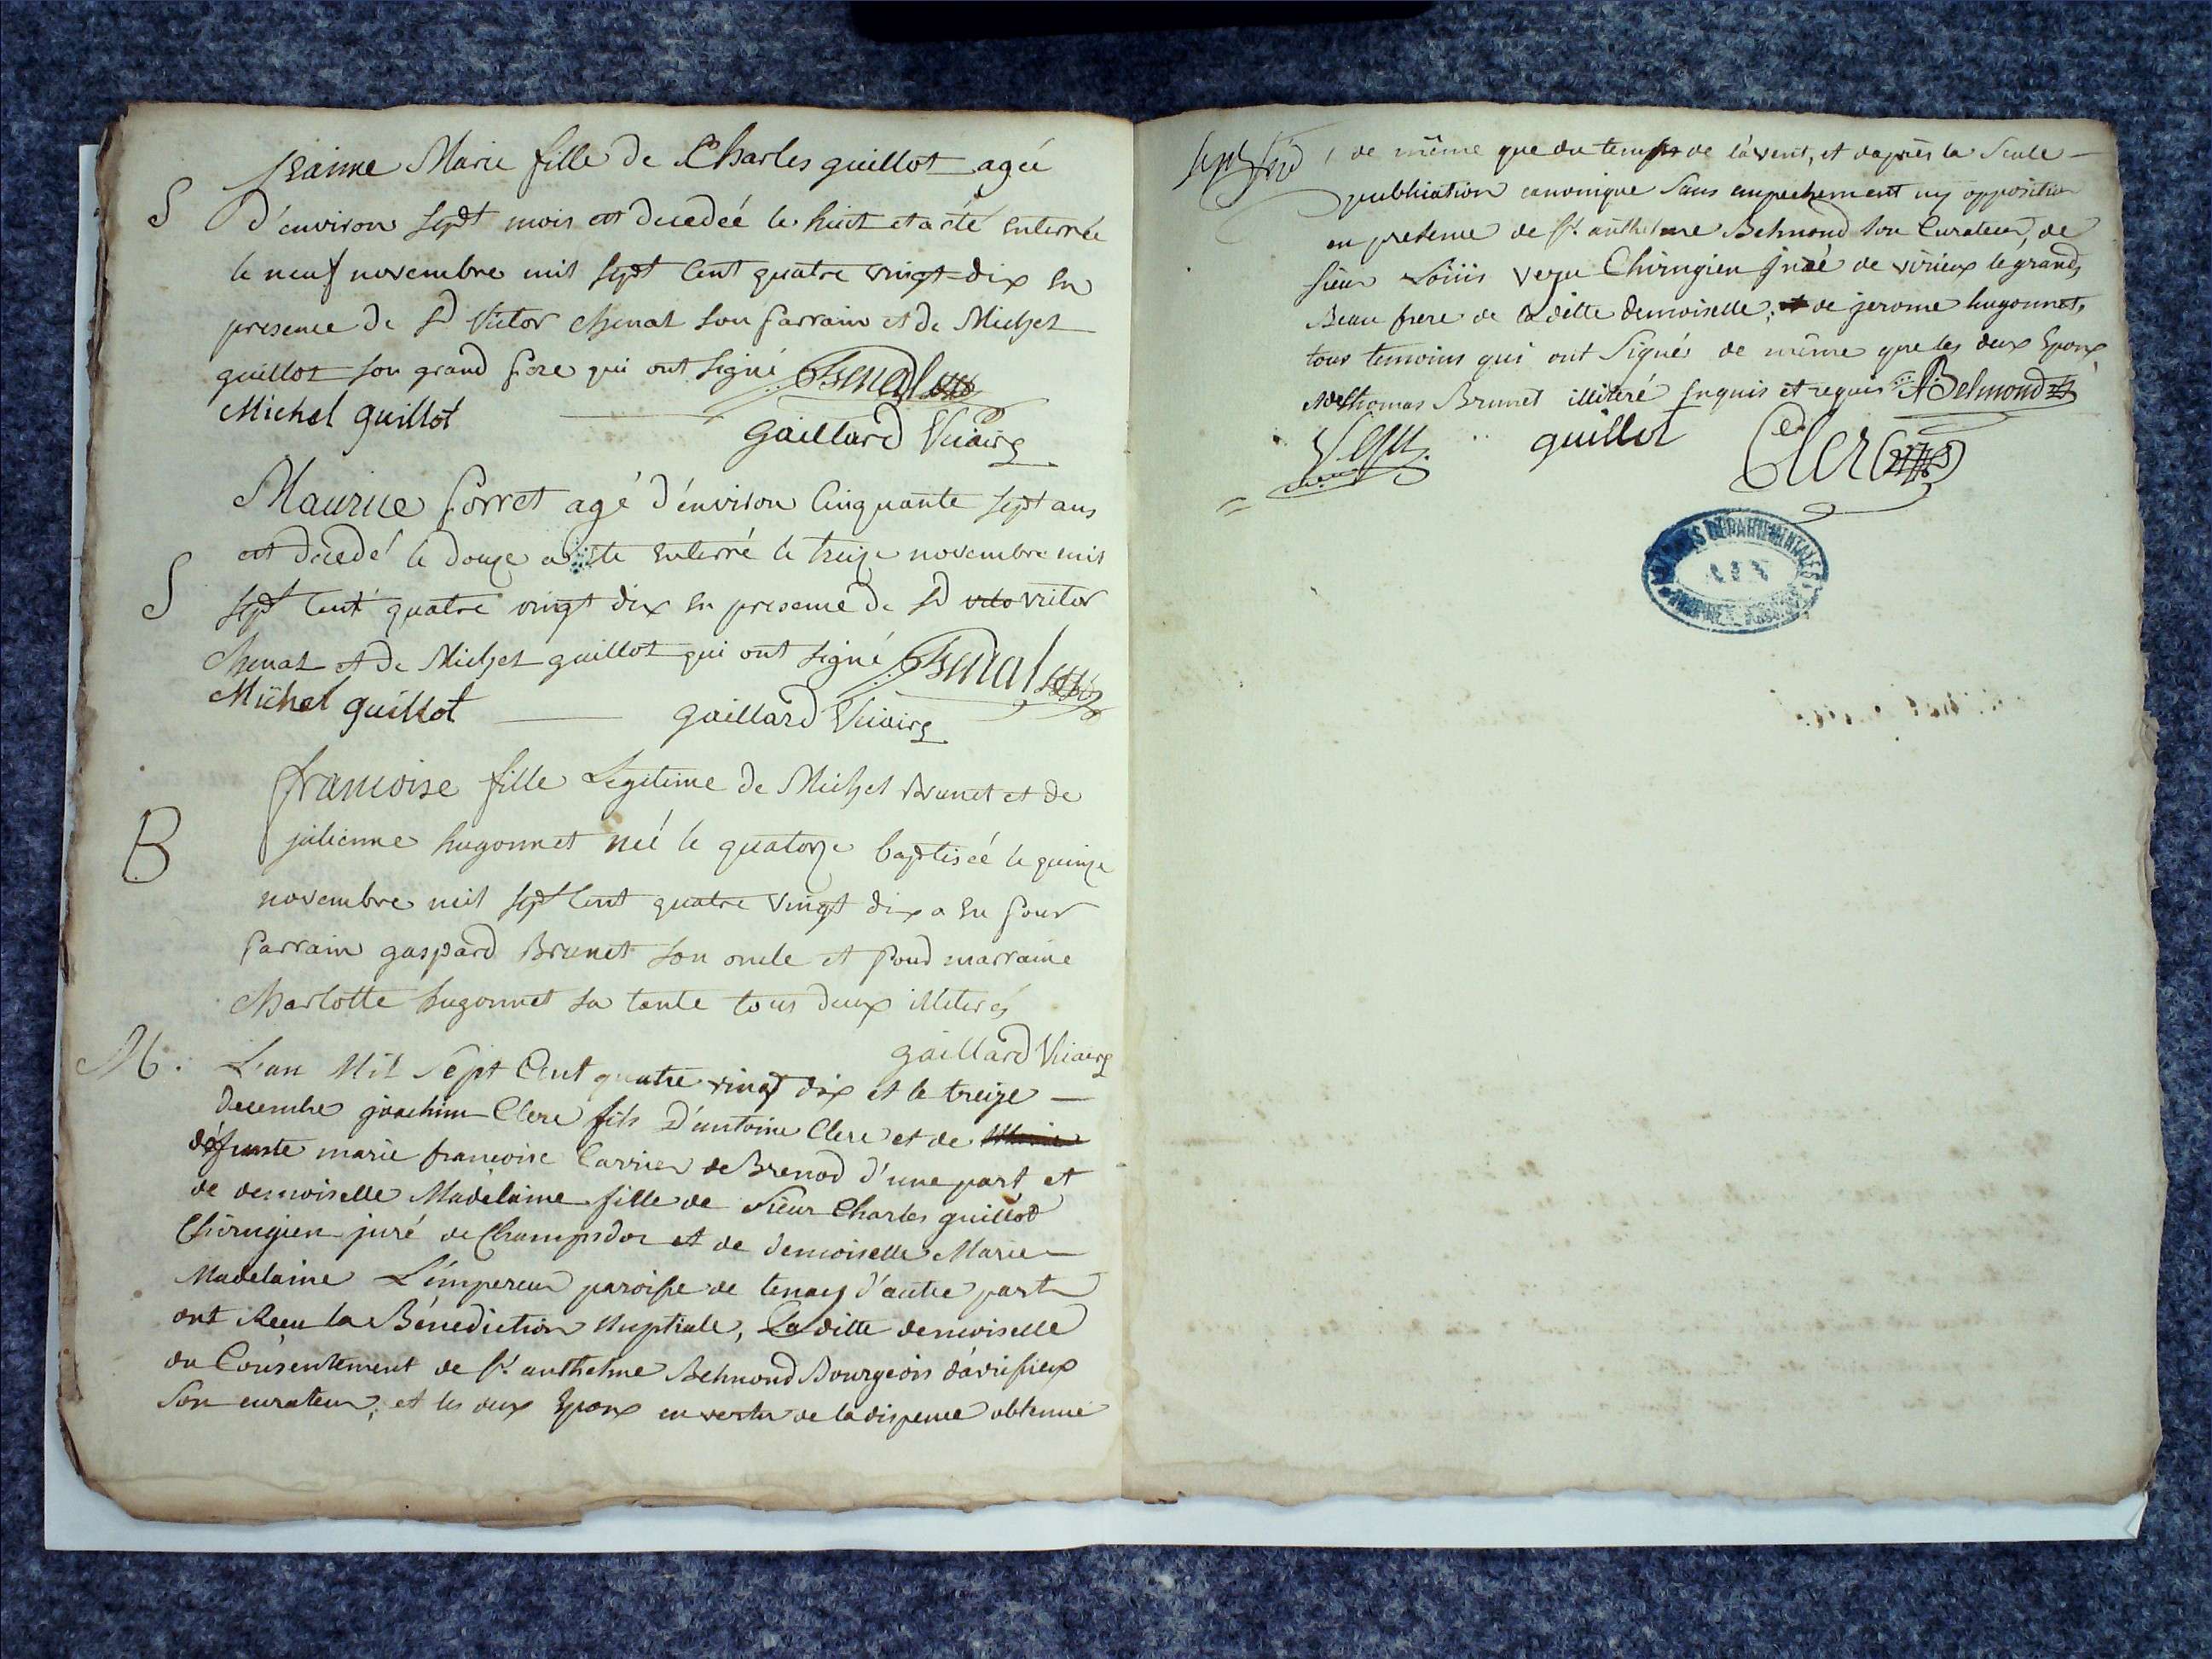 Jeanne Marie fille de Charles guillot agée
S d'environ sept mois est decedeé le huit et a été enterrée
le neuf novembre mil sept cent quatre vingt dix en
presence de Sr Victor Chenal son parrain et de Michel
guillot son grand pere qui ont signé Chenal
Michel guillot
gaillard Vicaire
Maurice Porret agé d'environ Cinquante sept ans
est decedé le douze a été enterré le treize novembre mil
S sept cent quatre vingt dix en presence de Sr victor
Chenal et de Michel guillot qui ont signé Chenal
Michel guillot gaillard Vicaire
francoise fille Legitime de Michel Brunet et de
B julienne hugonnet neé le quatorze baptiseé le quinze
novembre mil sept cent quatre vingt dix a eu pour
parrain gaspard Brunet son oncle et pour marraine
Charlotte hugonnet sa tante tous deux illiterés
gaillard Vicaire
M. L'an Mil Sept Cent quatre vingt dix et le treize
decembre joachim Clerc fils D'antoine Clerc et de
défunte marie francoise Carrier de Brenod d'une part et
de demoiselle Madelaine fille de Sieur Charles guillot
Chirurgien juré de Champdor et de demoiselle Marie
Madelaine L'émpereur paroisse de tenay d'autre part
ont Recu la Bénédiction Nuptiale, La ditte demoiselle
du Consentement de Sr anthelme Belmond Bourgeois d'avrissieux
Son curateur, et les deux Epoux en vertu de la dispence obtenue
de même que du temps de l'àvent, et d'après la Seule
publication canonique Sans empechement ny opposition
en presence de Sr anthelme Belmond son Curateur, de
sieur Loüis Vezu Chirurgien juré de virieux le grand,
Beau frere de la ditte demoiselle, de jerome hugonnet,
tous temoins qui ont Signés de même que les deux Epoux
et de thomas Brunet illiteré Enquis et requis ABelmond
Vezu guillot Clerc
ARCHIVES DÉPARTEMENTALES
AIN